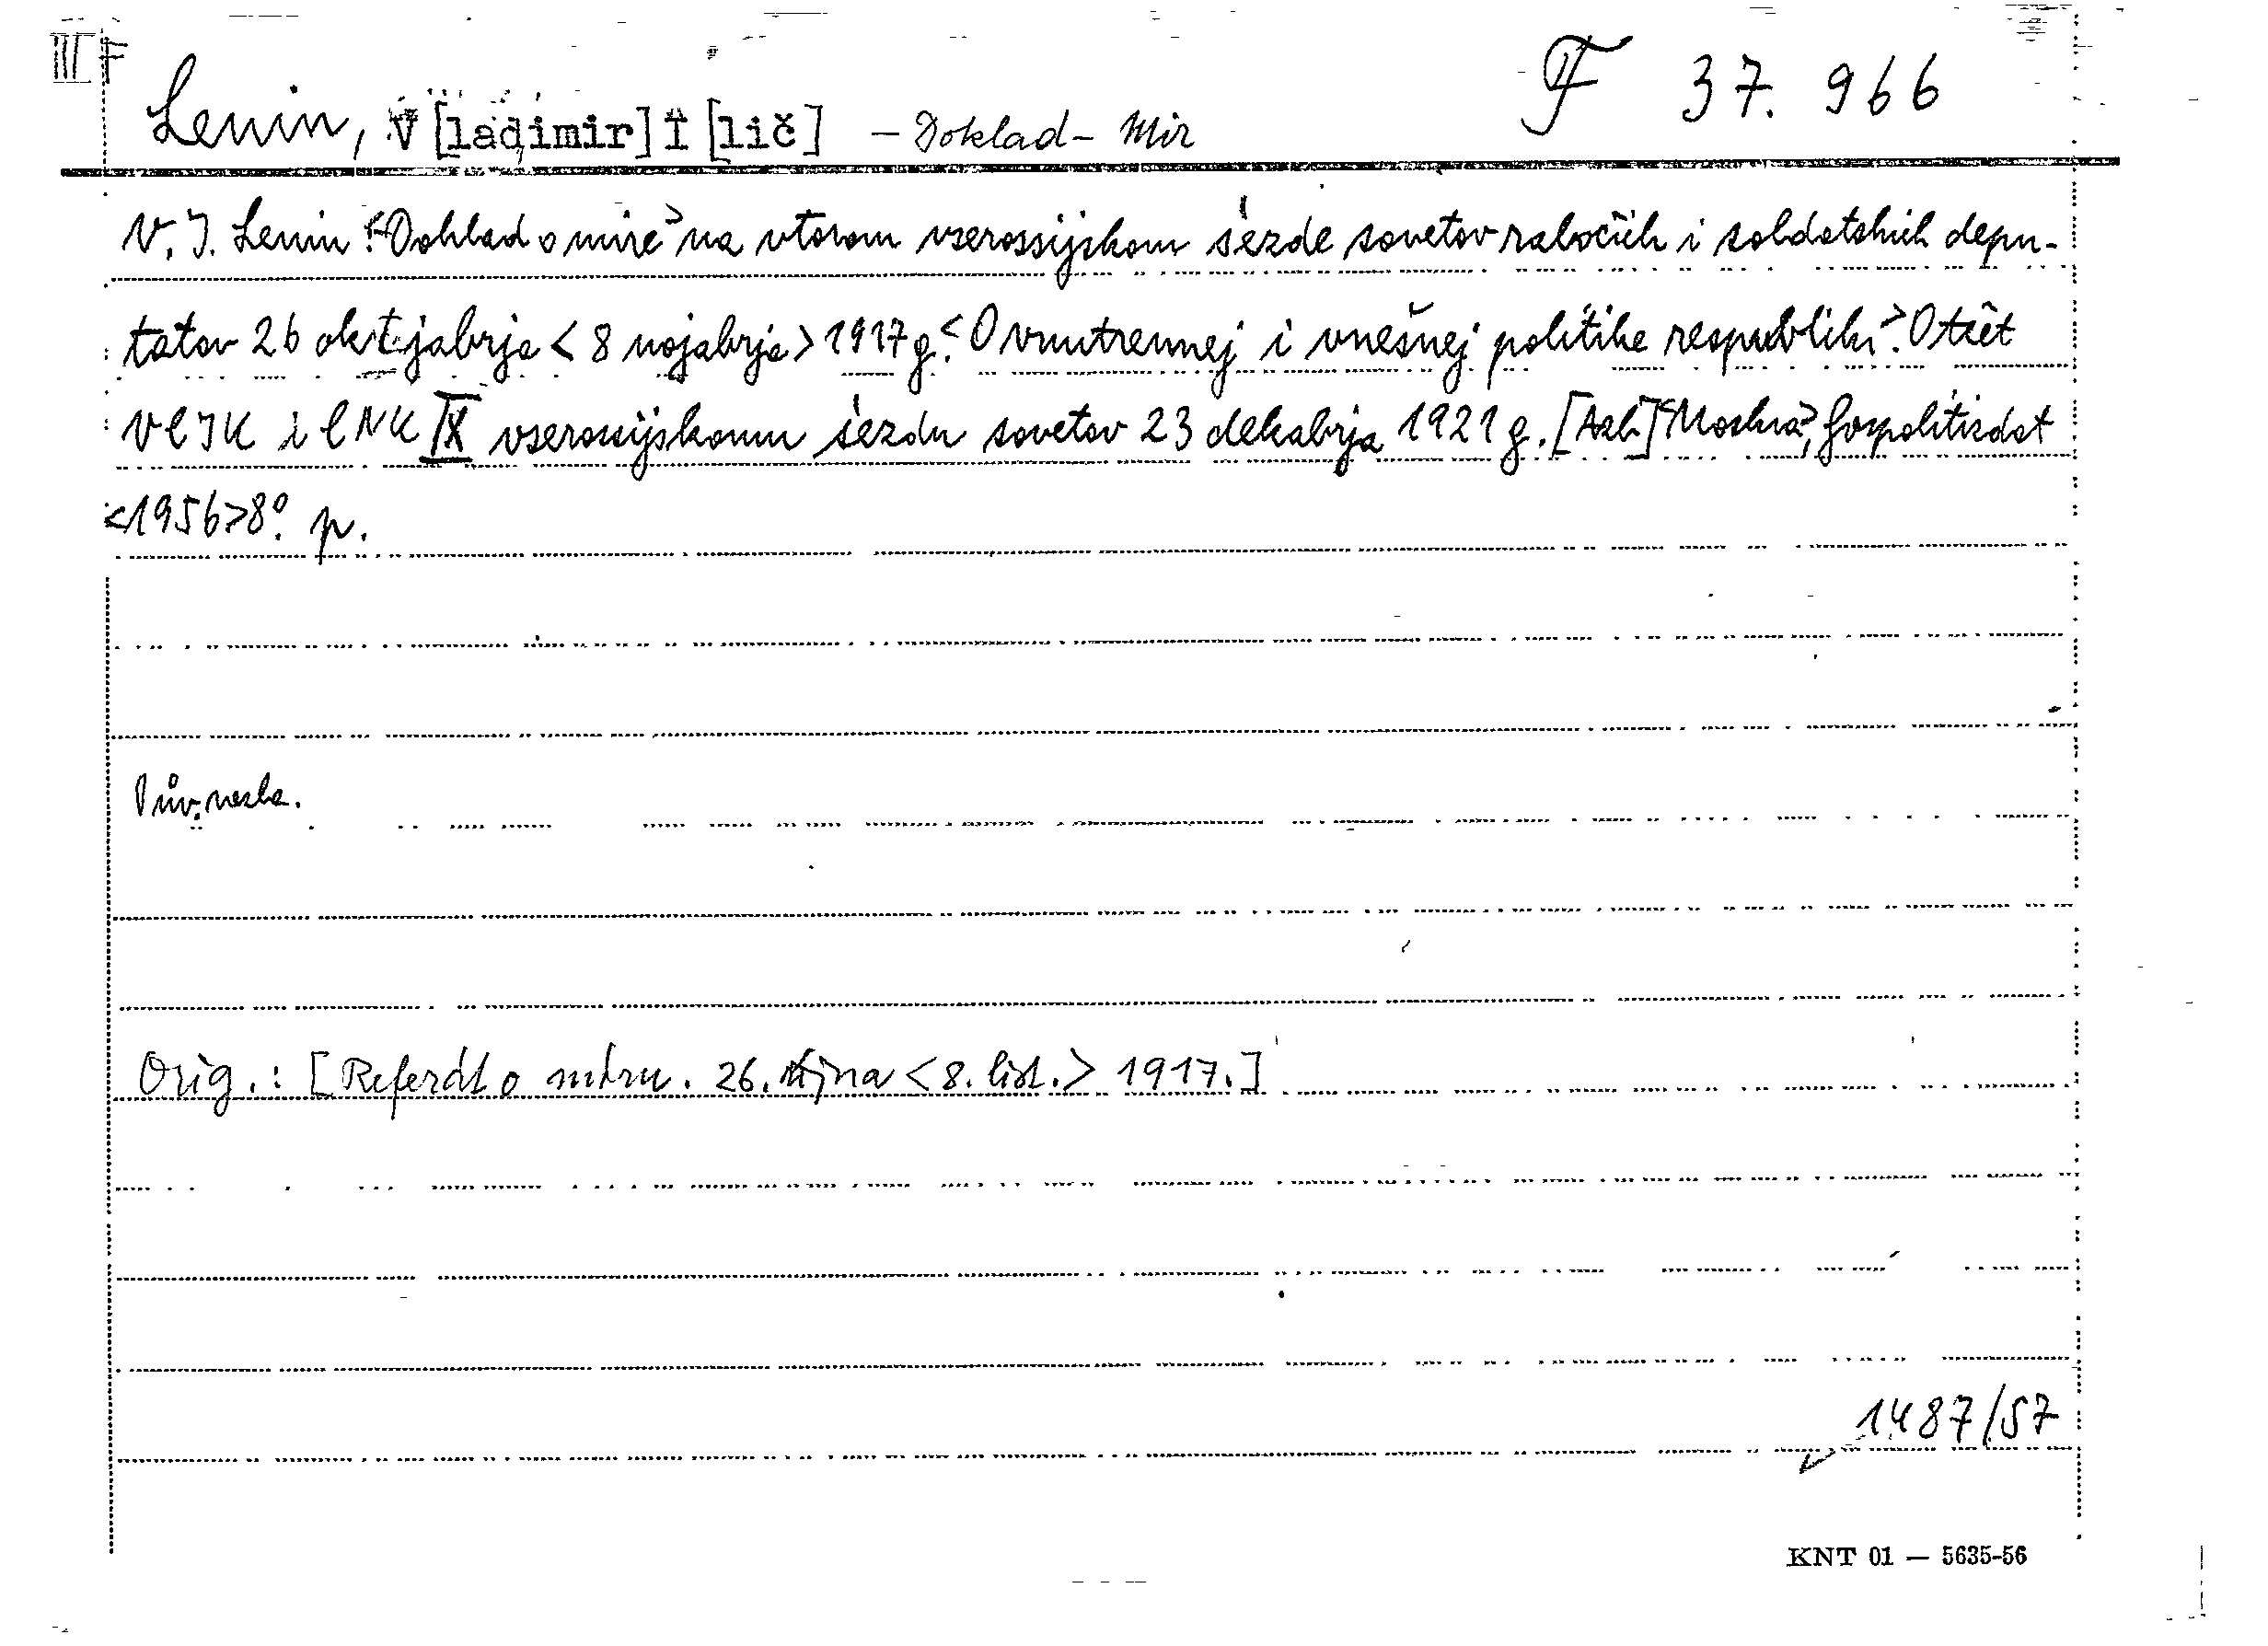 III F
F 37.966
Lenin, V[ladimir] I[lič] – Doklad – Mir
V. I. Lenin: <Doklad o mire> na vtorom vserossijskom sězde sovetov rabočich i soldatskich depu-
tatov 26 oktjabrja <8 nojabrja> 1917 g. <O vnutrennej i vnešnej politike respubliki>. Otčět
VCIK i CNK IX vserossijskomu sězdu sovetov 23 dekabrja 1921 g. <Moskva>, Gospolitizdat
<1956> 8°. p.
Pův.
Orig.: [Referát o míru. 26. října <8. list.> 1917.]
1487/57
KNT 01 — 5635-56